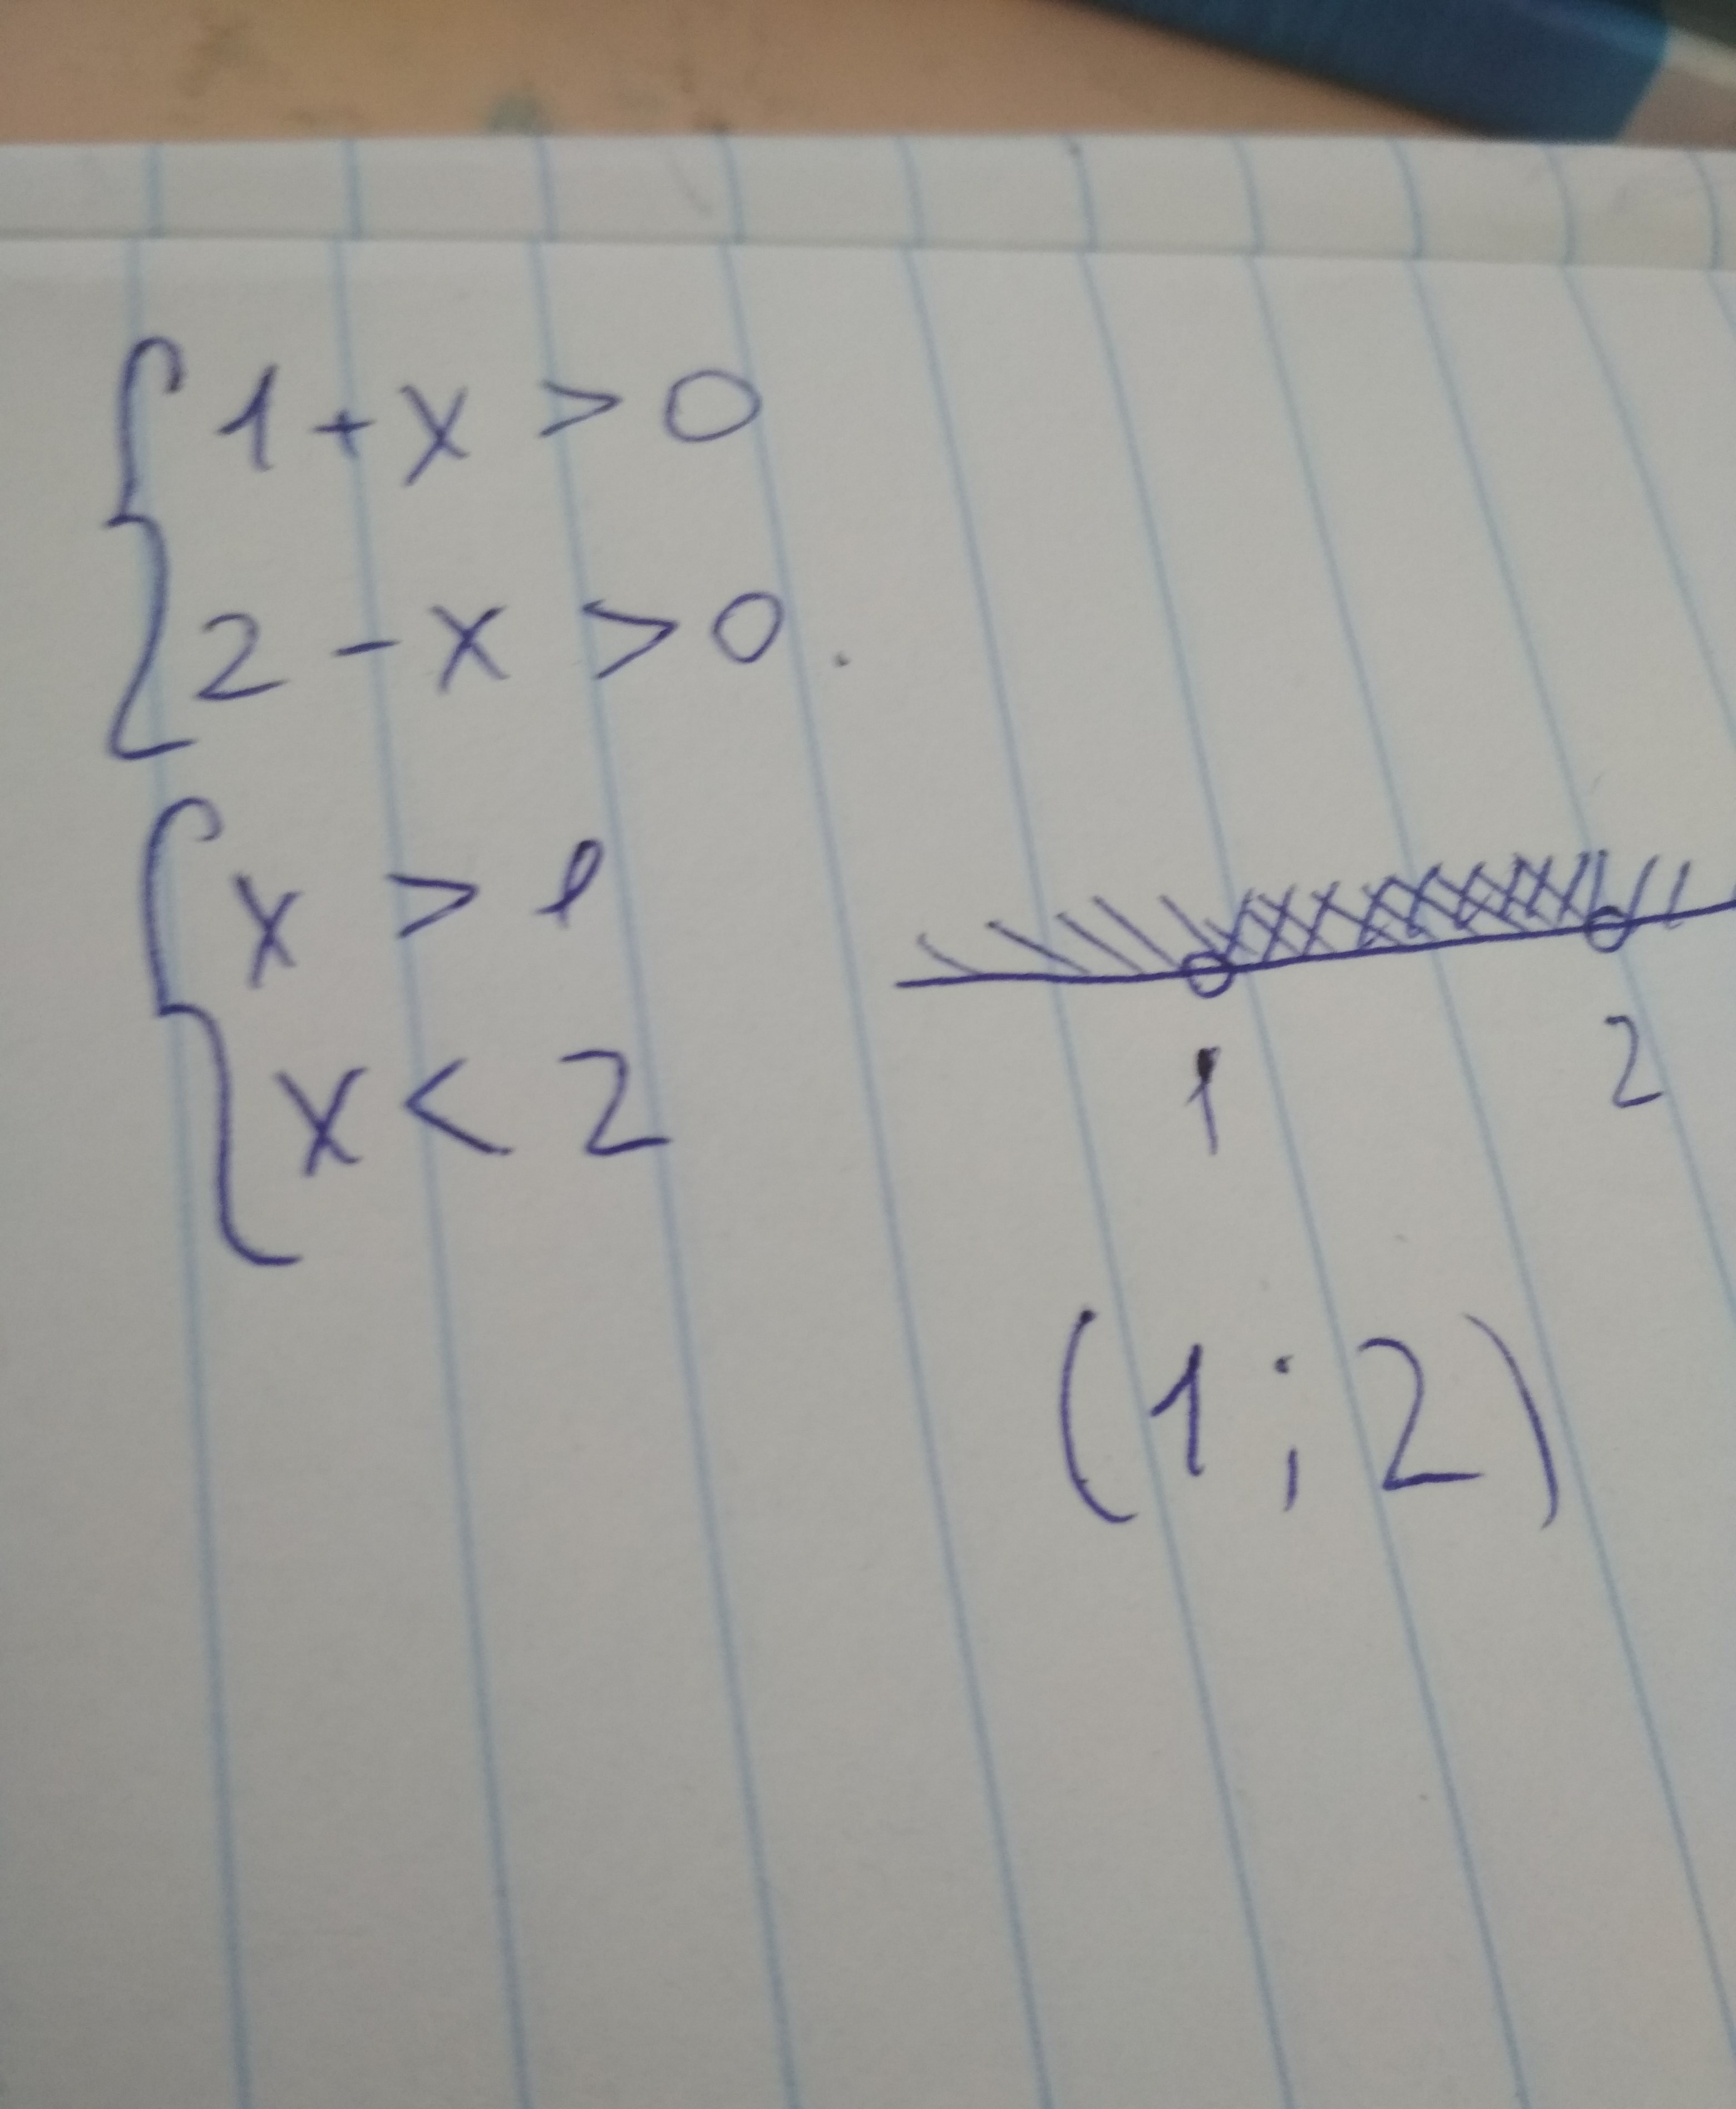 1 + x > 0
2 - x > 0.
x > 1
x < 2
1 2
(1; 2)